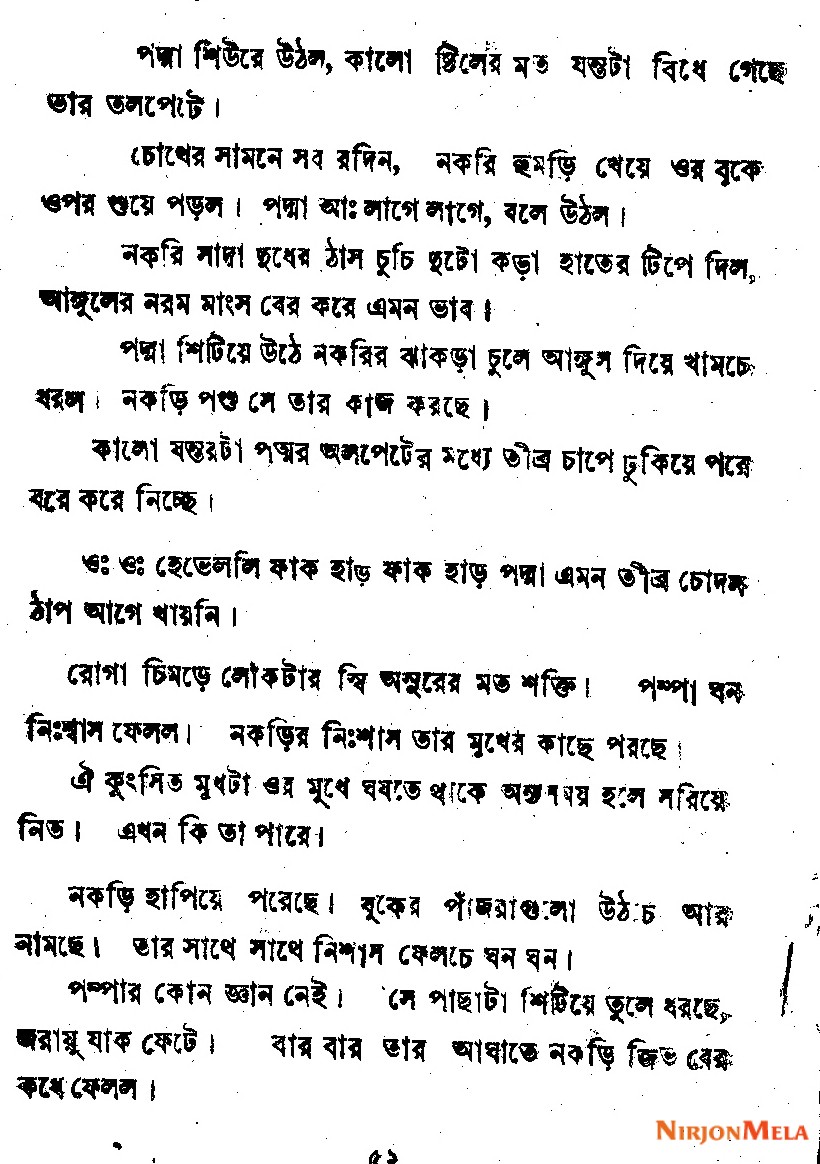 পদ্মা শিউরে উঠল, কালো ষ্টিলের মত যন্তটা বিধে গেছে
তার তলপেটে।
চোখের সামনে সব রদিন, নকরি হুমড়ি খেয়ে ওর বুকে
ওপর শুয়ে পড়ল। পদ্মা আঃ লাগে লাগে, বলে উঠল।
নকরি সাদা দুধের ঠাস চুচি দুটো কড়া হাতের টিপে দিল,
আঙ্গুলের নরম মাংস বের করে এমন ভাব।
পদ্মা শিটিয়ে উঠে নকরির ঝাকড়া চুলে আঙ্গুল দিয়ে খামচে
ধরল। নকড়ি পশু সে তার কাজ করছে।
কালো যন্তরটা পদ্মর অলপেটের মধ্যে তীব্র চাপে ঢুকিয়ে পরে
বরে করে নিচ্ছে।
ওঃ ওঃ হেভেললি ফাক হাড় ফাক হাড় পদ্মা এমন তীব্র চোদন
ঠাপ আগে খায়নি।
রোগা চিমড়ে লোকটার স্বি অসুরের মত শক্তি। পম্পা ঘন
নিঃশ্বাস ফেলল। নকড়ির নিঃশাস তার মুখের কাছে পরছে।
ঐ কুৎসিত মুখটা ওর মুখে ঘষতে থাকে হলে সরিয়ে
নিত। এখন কি তা পারে।
নকড়ি হাপিয়ে পরেছে। বুকের পাঁজরাগুলো উঠচে আর
নামছে। তার সাথে সাথে নিশাস ফেলচে ঘন ঘন।
পম্পার কোন জ্ঞান নেই। সে পাছাটা শিটিয়ে তুলে ধরছে,
জরায়ু যাক ফেটে। বার বার তার আঘাতে নকড়ি জিভ বের
কধে ফেলল।
NIRJONMELA
৫১